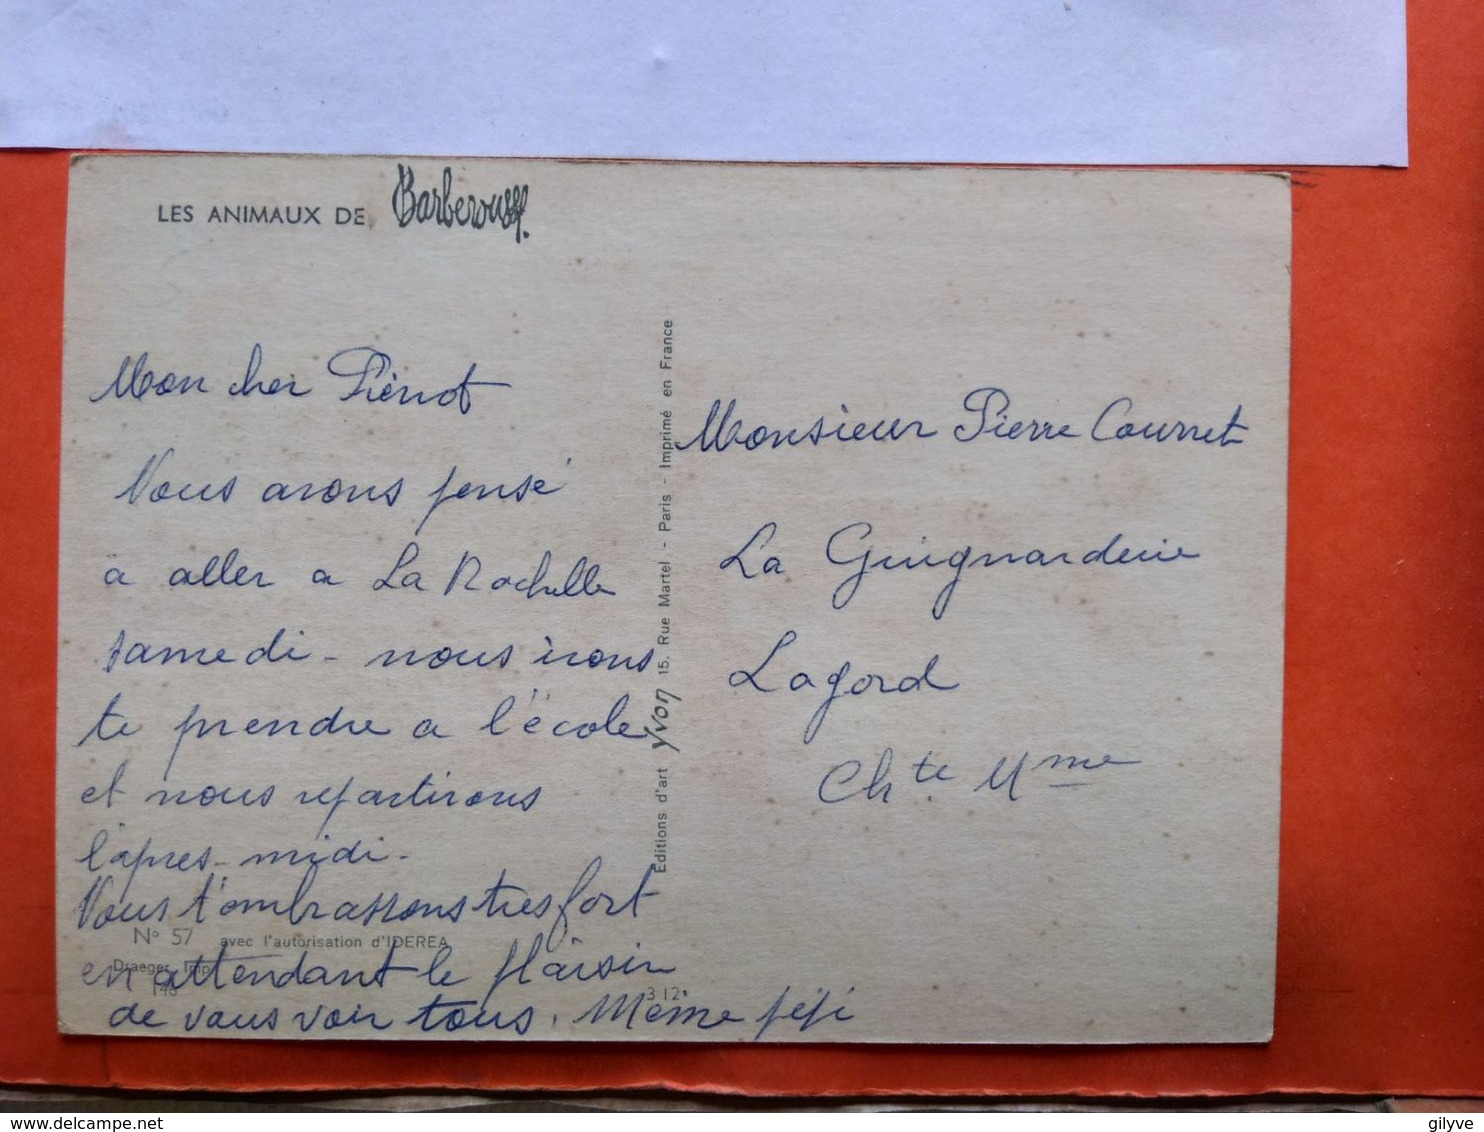 LES ANIMAUX DE Barberousse
Mon cher Pierrot
Nous avons pensé
a aller a La Rochelle
samedi - nous irons
te prendre a l'école
et nous repartirons
l'apres-midi -
Nous t'embrassons tres fort
en attendant le plaisir
de vous voir tous. Mémé pépé
N° 57 avec l'autorisation d'IDEREA
Draeger Imp.
146
312
Editions d'art Yvon 15, Rue Martel - Paris - Imprimé en France
Monsieur Pierre Courret
La Guignarderie
Lagord
Chte Mme
delcampe.net
gilyve